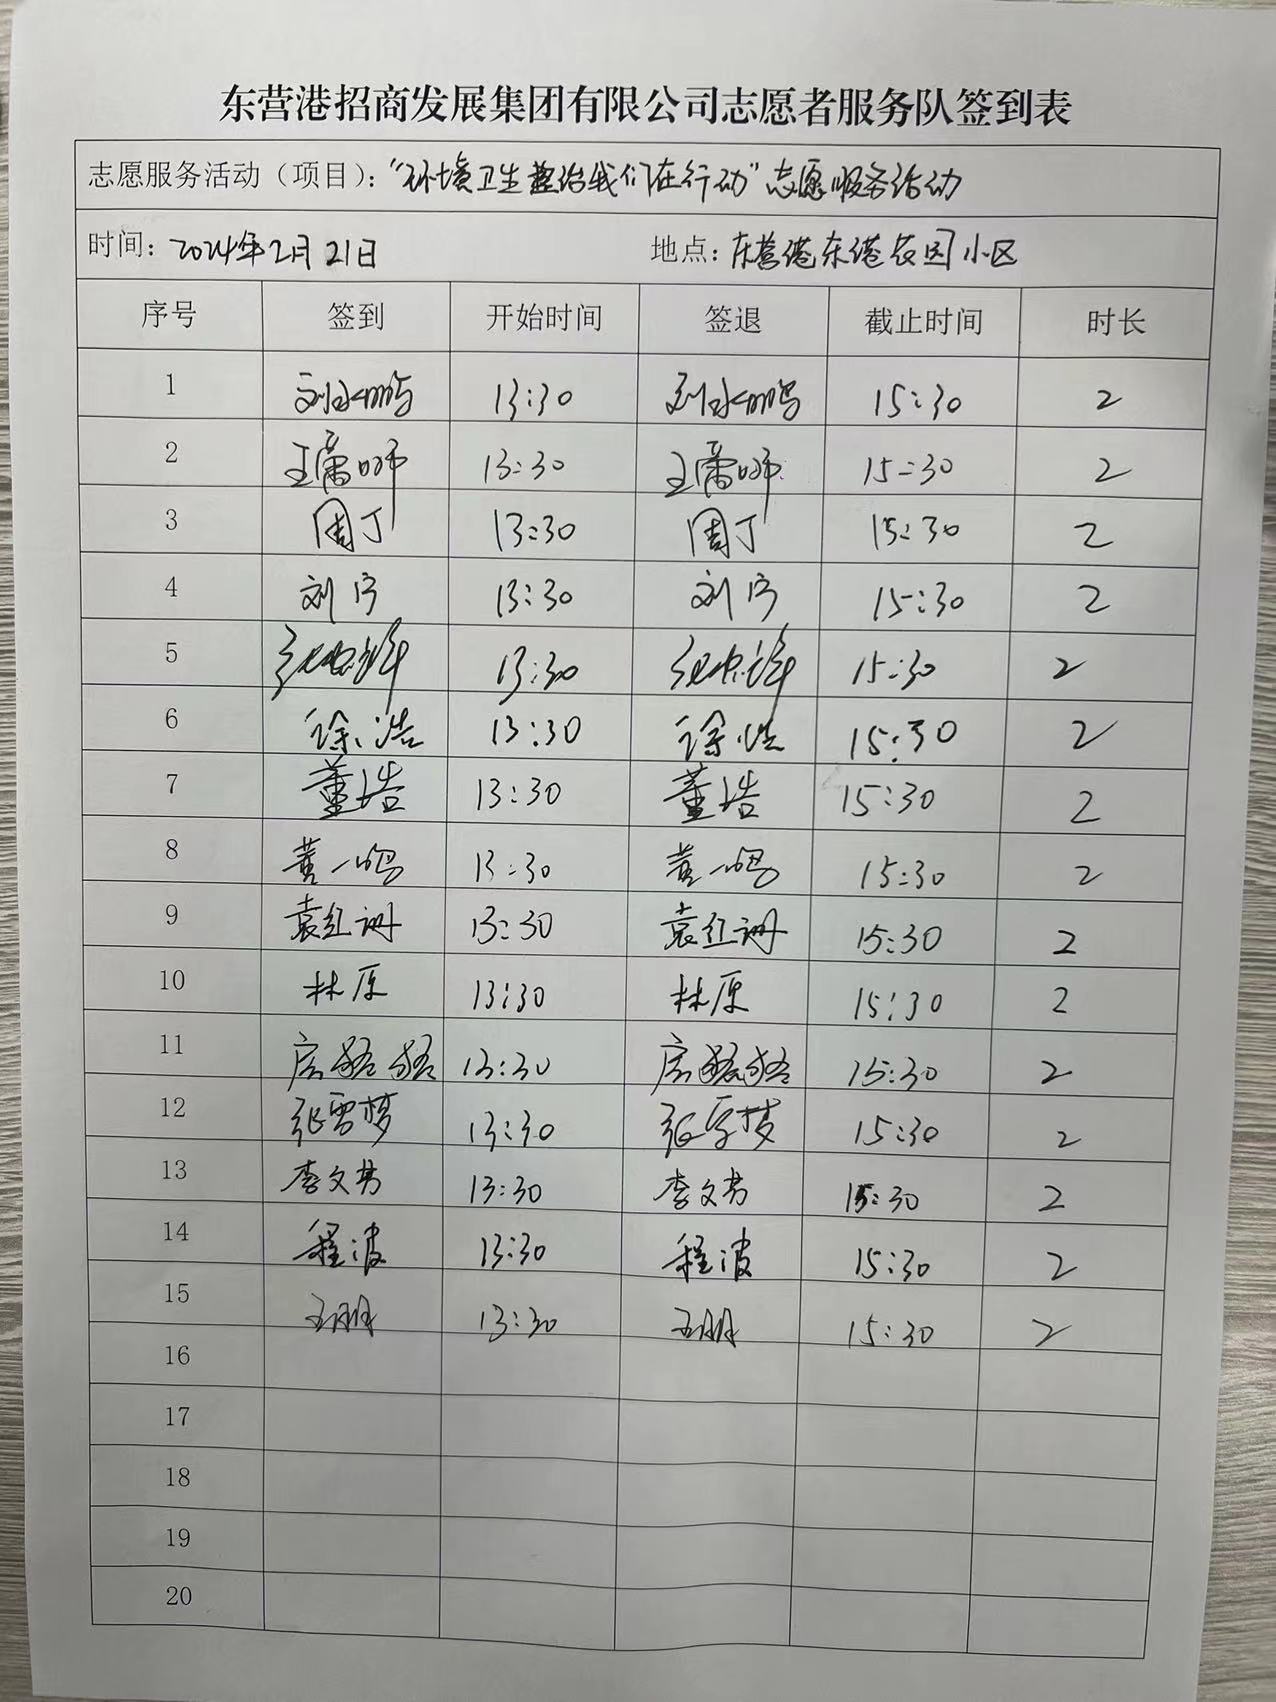 东营港招商发展集团有限公司志愿者服务队签到表
志愿服务活动（项目）：“环境卫生整治我们在行动”志愿服务活动
时间：2024年2月21日 地点：东营港东港花园小区
序号 签到 开始时间 签退 截止时间 时长
1 刘永鹏 13:30 刘永鹏 15:30 2
2 13:30 15:30 2
3 周丁 13:30 周丁 15:30 2
4 刘宁 13:30 刘宁 15:30 2
5 13:30 15:30 2
6 徐浩 13:30 徐浩 15:30 2
7 董浩 13:30 董浩 15:30 2
8 黄一鸣 13:30 黄一鸣 15:30 2
9 袁红珊 13:30 袁红珊 15:30 2
10 林原 13:30 林原 15:30 2
11 13:30 15:30 2
12 张雪梦 13:30 张雪梦 15:30 2
13 李文芳 13:30 李文芳 15:30 2
14 程波 13:30 程波 15:30 2
15 王朋 13:30 王朋 15:30 2
16
17
18
19
20